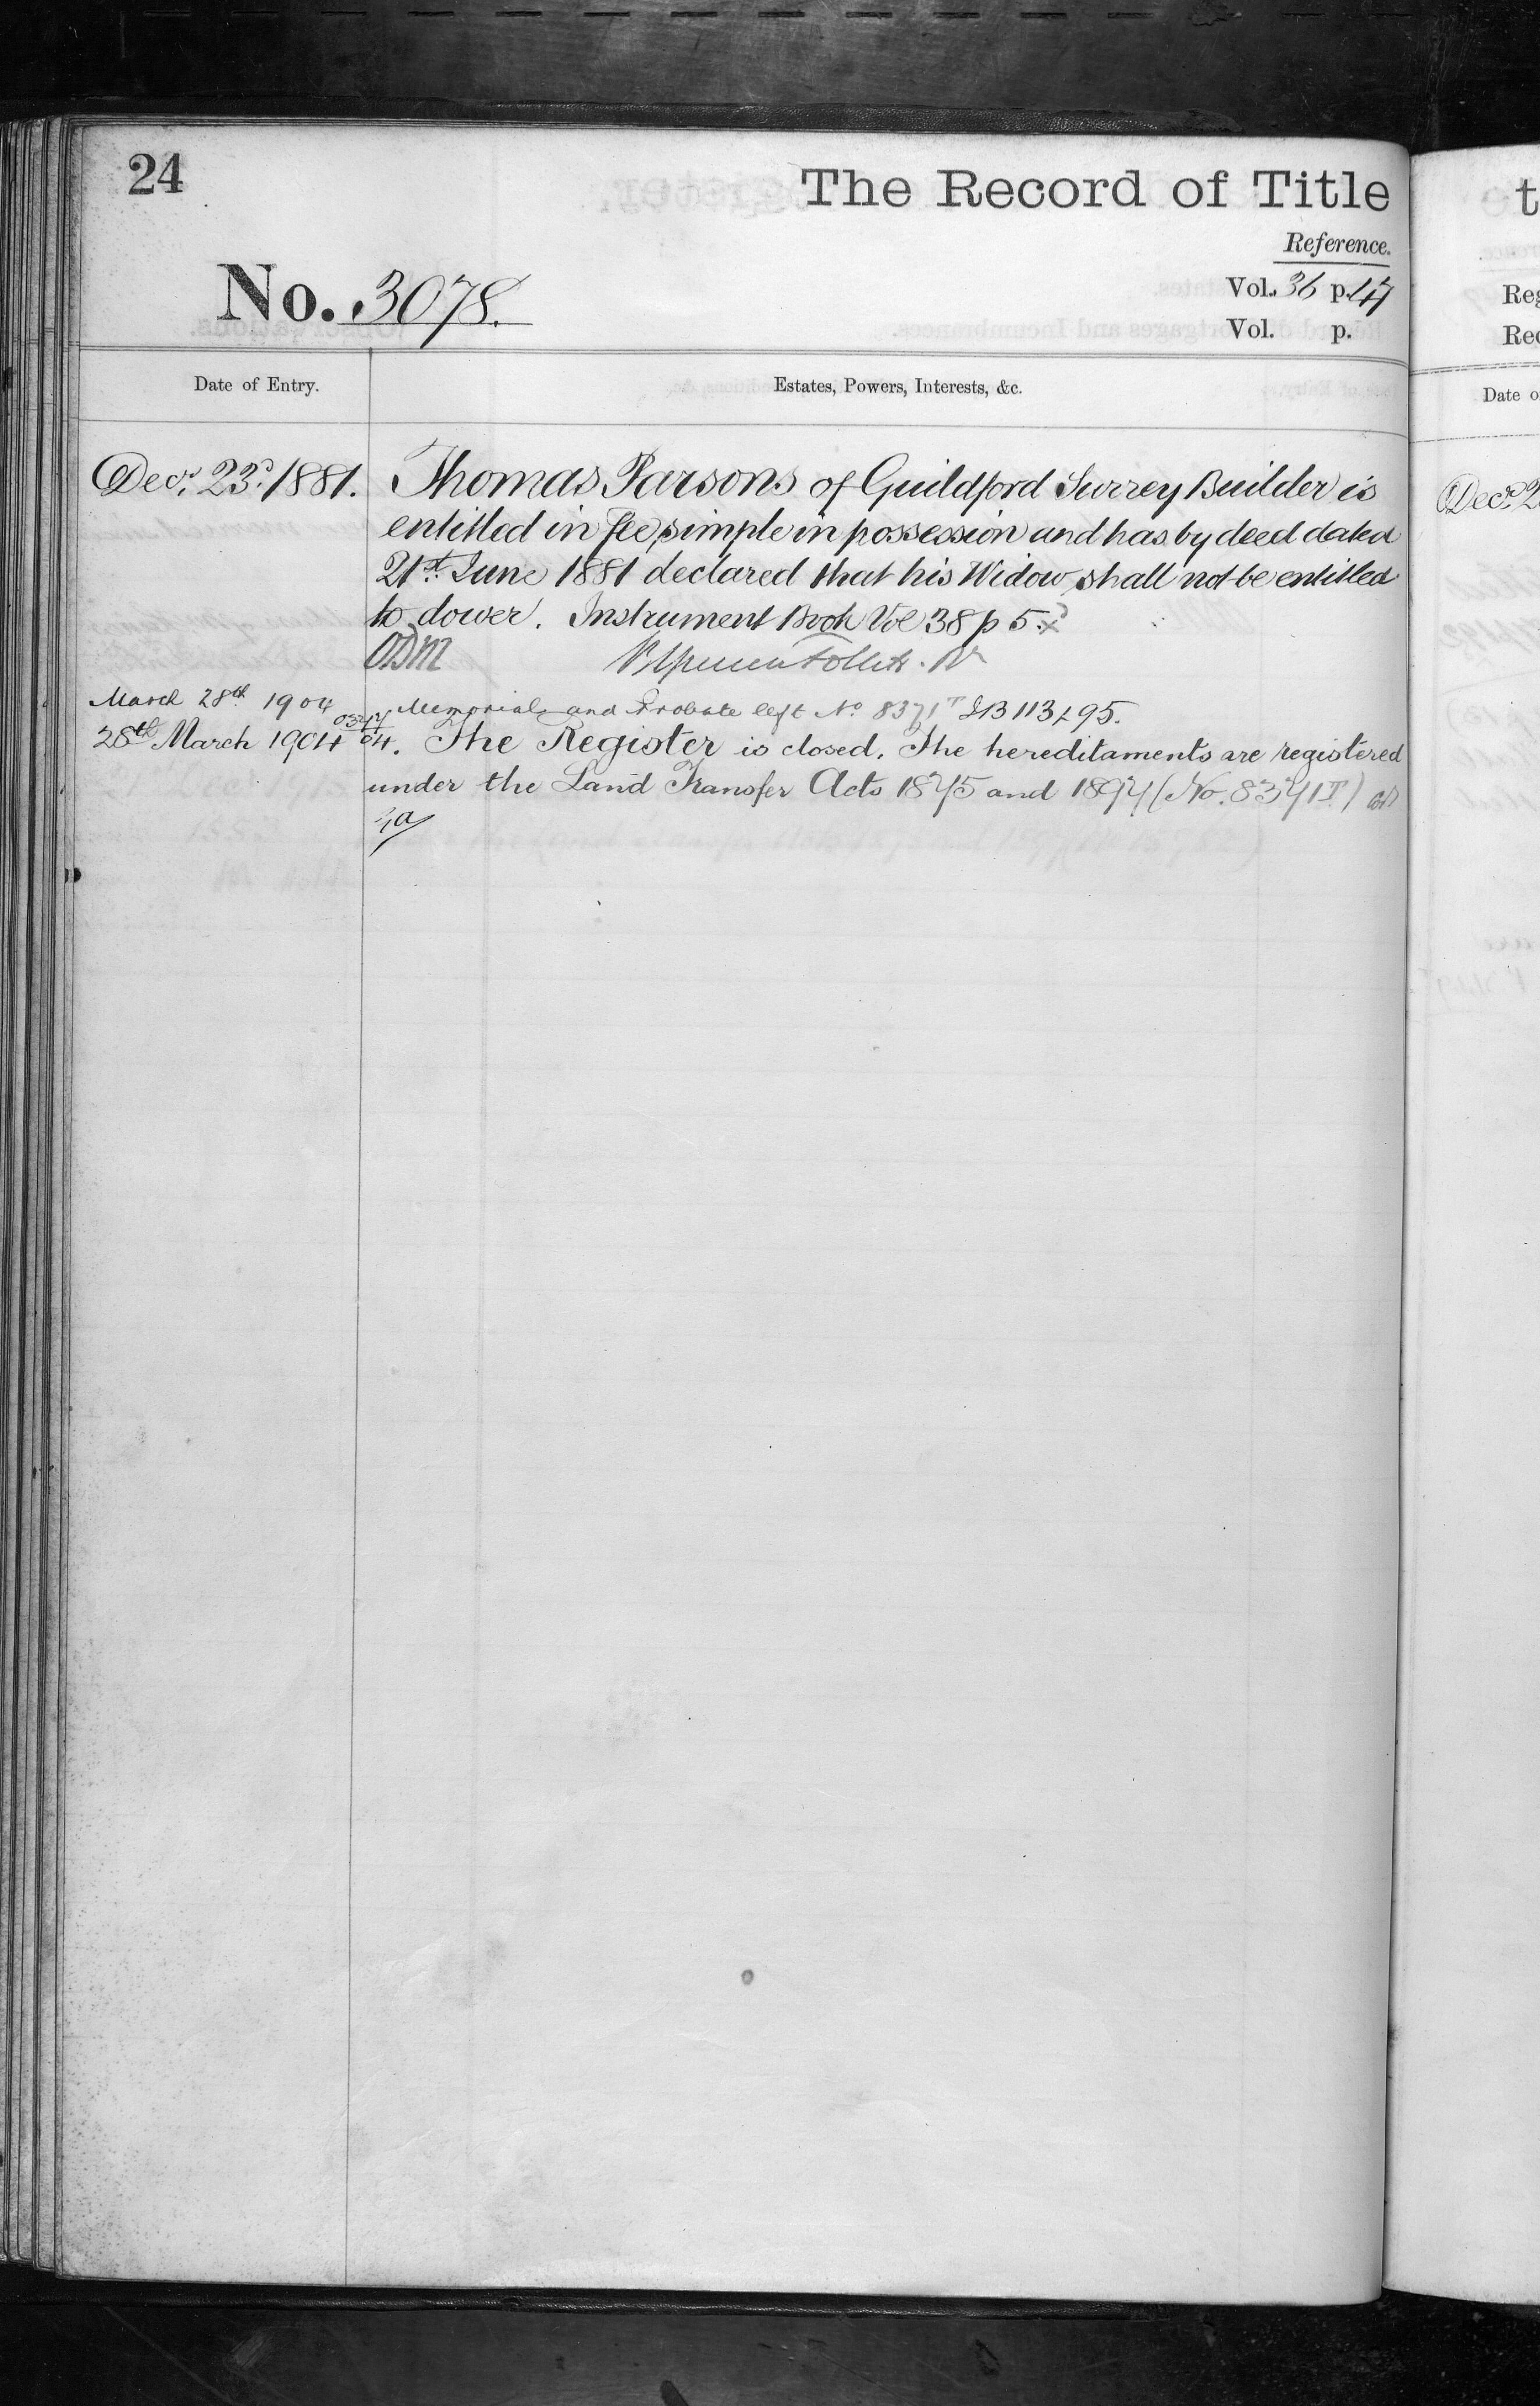 24
The Record of Title
Reference.
No. 3078.
Vol. 36 p. 147
Vol. p.
Date of Entry.
Estates, Powers, Interests, &c.
Decr. 23d. 1881.
Thomas Parsons of Guildford Surrey Builder is
entitled in fee simple in possession and has by deed dated
21st. June 1881 declared that his Widow shall not be entitled
to dower. Instrument Book Vol 38 p 5.
March 28th 1904
Memorial and Probate left No 8371T
28th March 1904
The Register is closed. The hereditaments are registered
under the Land Transfer Acts 1875 and 1897 (No. 8371T)
t
Reg
Rec
Date o
Decr. 2